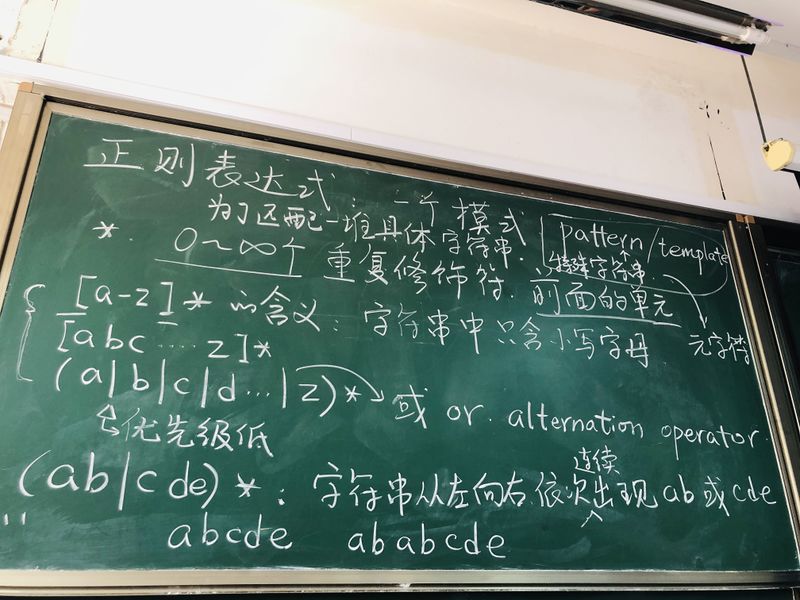 正则表达式：一个模式 pattern/template
为了匹配一堆具体字符串. 特殊字符串
*. 0~∞个 重复修饰符. 前面的单元
[a-z]* 的含义：字符串中只含小写字母. 元字符
[abc....z]*
(a|b|c|d...|z)* 或 or. alternation operator.
优先级低
连续
(ab|cde)*: 字符串从左向右依次出现ab或cde
"" abcde ababcde